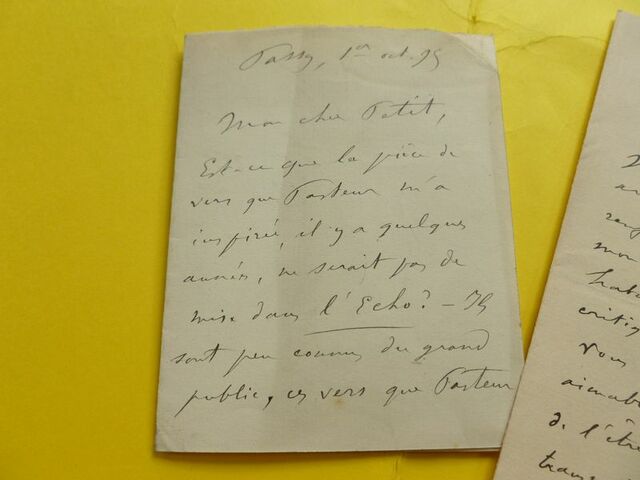 Passy, 1er oct. 95
Mon cher Petit,
Est-ce que la pièce de
vers que Pasteur m'a
inspirée, il y a quelques
années, ne serait pas de
mise dans l'Echo? – Ils
sont peu connus du grand
public, ces vers que Pasteur
mon
critiq
vous
aimab
de l'êtr
trans